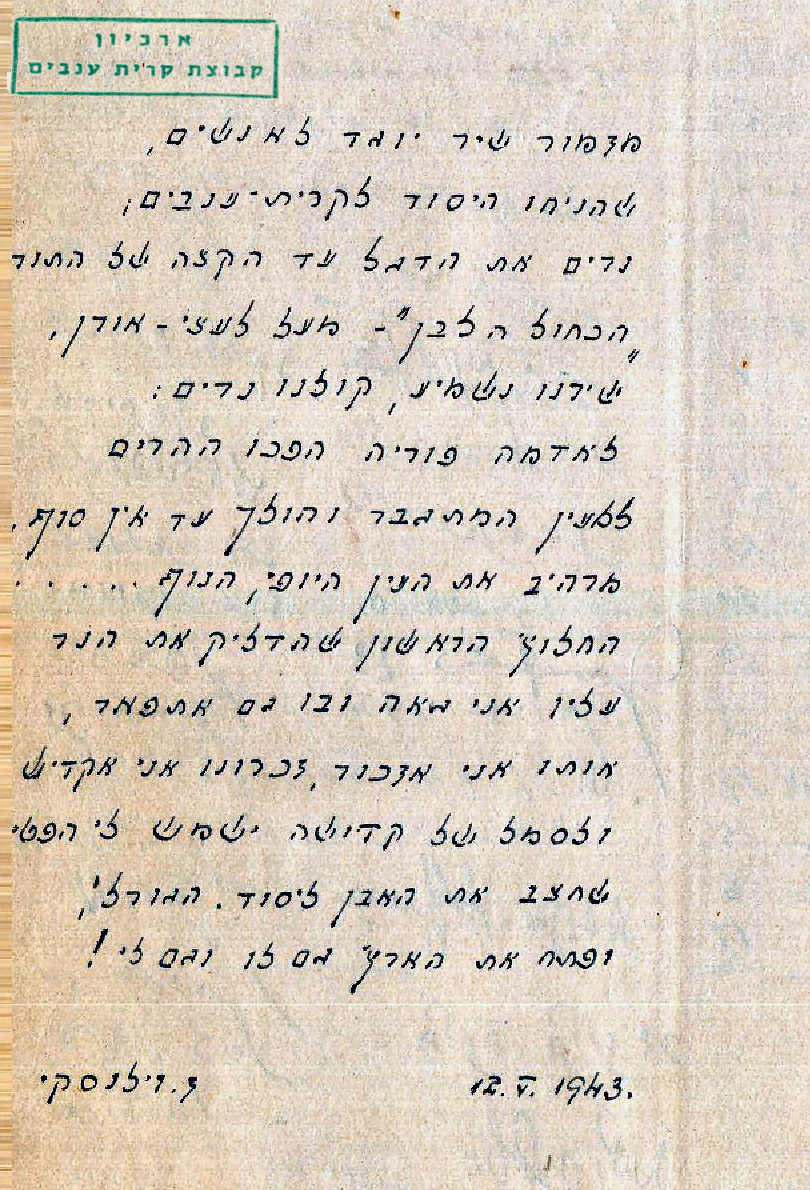 ארכיון
קבוצת קרית ענבים
מזמור שיר יוגד לאנשים,
שהניחו היסוד לקרית-ענבים;
נרים את הדגל עד הקצה של התור
"הכחול הלבן" - מעל לעצי - אורן,
שירנו נשמיע, קולנו נרים:
לאדמה פוריה הפכו ההרים
למעין המתגבר והולך עד אין סוף,
מרהיב את העין היופי, הנוף . . . . .
החלוץ הראשון שהדליק את הנר
עליו אני גאה ובו גם אתפאר,
אותו אני אזכור, זכרונו אני אקדיש
ולסמל של קדושה ישמש לי הפטי
שחצב את האבן ליסוד. הגורלי,
ופתח את הארץ גם לו וגם לי!
12.V.1943.
ז. וילנסקי